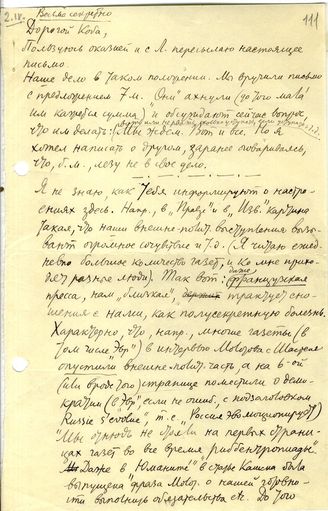 2.IV. Весьма секретно 111
Дорогой Коба,
Пользуюсь оказией и с Л. пересылаю настоящее
письмо.
Наше дело в таком положении. Мы вручили письмо
с предложением 7 м. "Они" ахнули (до того мала
им кажется сумма) и обсуждают сейчас вопрос,
что им делать:
Мы ждем. Вот и все. Но я
хотел написать о другом, заранее оговариваясь,
что, б.м., лезу не в свое дело.
Я не знаю, как тебя информируют о настро-
ениях здесь. Напр., в "Правде" и в "Изв." картина
такая, что наши внешне-полит. выступления вызы-
вают огромное сочувствие и т.д. (Я читаю ежед-
невно большое количество газет, и ко мне прихо-
дят разные люди). Так вот: даже французская
пресса, нам "близкая", трактует сно-
шения с нами, как полусекретную болезнь.
Характерно, что, напр., многие газеты (в
том числе) в интервью Молотова с Шастене
опустили внешне-полит. часть, а на 6-ой
(или вроде того) странице поместили о демо-
кратии (в, если не ошиб., с подзаголовком
Russie s'évolue", т.е. "Россия эволюционирует")
Мы отнюдь не стояли на первых страни-
цах газет во все время
Даже в "Юманите" в статье Кашена была
выпущена фраза Молот. о нашей готовно-
сти выполнить обязательства etc. До того